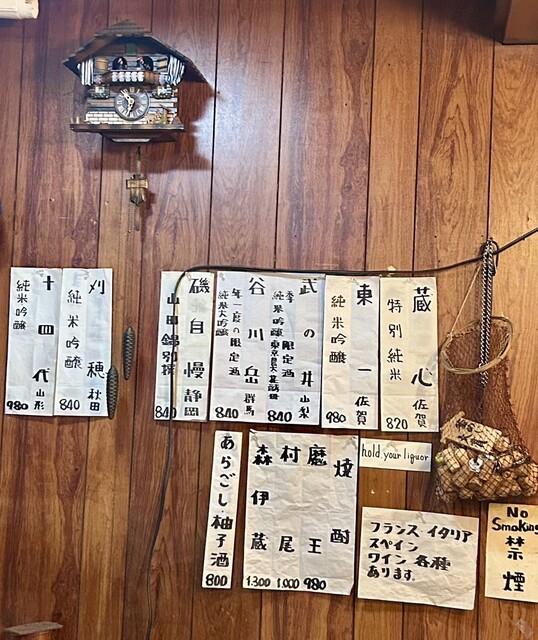 蔵心 佐賀
特別純米
820
東一 佐賀
純米吟醸
980
武の井 山梨
限定酒
純米吟醸 東京農大
840
谷川岳 群馬
年一度の限定酒
純米大吟醸
840
磯自慢 静岡
山田錦別撰
840
刈穂 秋田
純米吟醸
840
十四代 山形
純米吟醸
980
hold your liquor
No
Smoking
禁煙
フランス イタリア
スペイン
ワイン 各種
あります。
焼酎
魔王 980
村尾 1.000
森伊蔵 1.300
あらごし・柚子酒
800